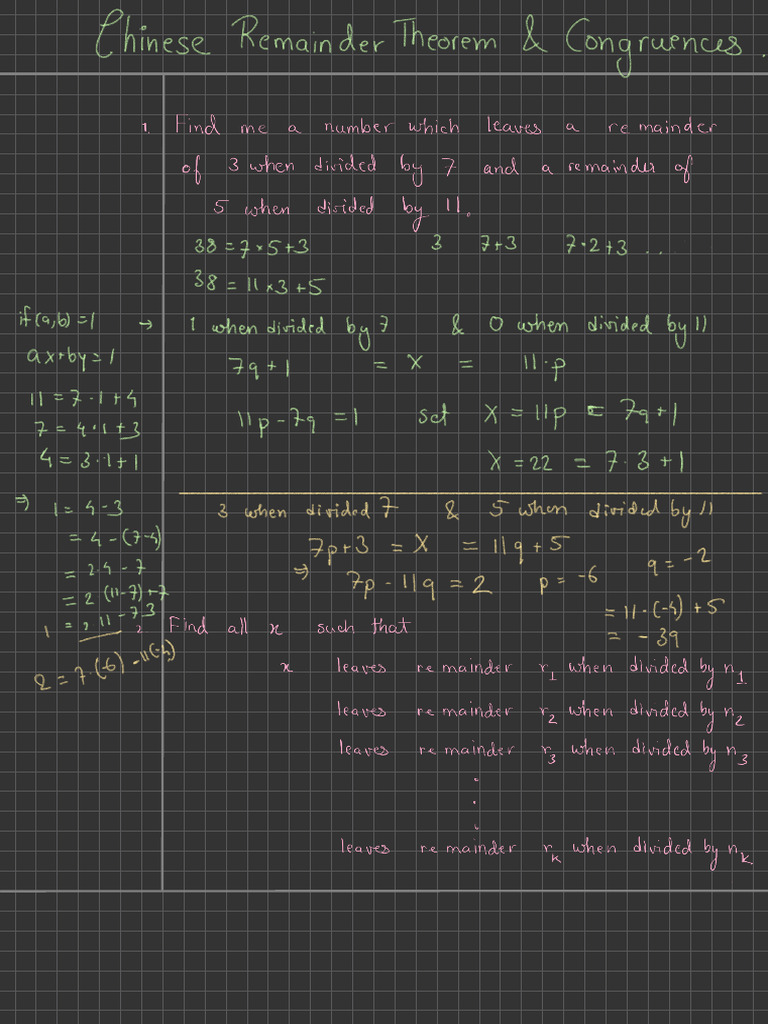 Chinese Remainder Theorem & Congruences.
1. Find me a number which leaves a remainder
of 3 when divided by 7 and a remainder of
5 when divided by 11.
38 = 7×5+3    3    7+3    7·2+3 ...
38 = 11×3+5
if (a,b) = 1 → 1 when divided by 7 & 0 when divided by 11
ax+by = 1
7q+1 = X = 11·p
11 = 7·1+4
7 = 4·1+3
4 = 3·1+1
11p-7q = 1 set X = 11p = 7q+1
X = 22 = 7·3+1
⇒ 1 = 4-3
= 4-(7-4)
= 2·4-7
= 2(11-7)+7
1 = 2·11-7·3
2 = 7·(-6)-11(-4)
3 when divided 7 & 5 when divided by 11
7p+3 = X = 11q+5
⇒ 7p-11q = 2    p = -6    q = -2
= 11·(-4)+5
= -39
2 Find all x such that
x leaves remainder r₁ when divided by n₁.
leaves remainder r₂ when divided by n₂
leaves remainder r₃ when divided by n₃
.
.
.
leaves remainder rₖ when divided by nₖ